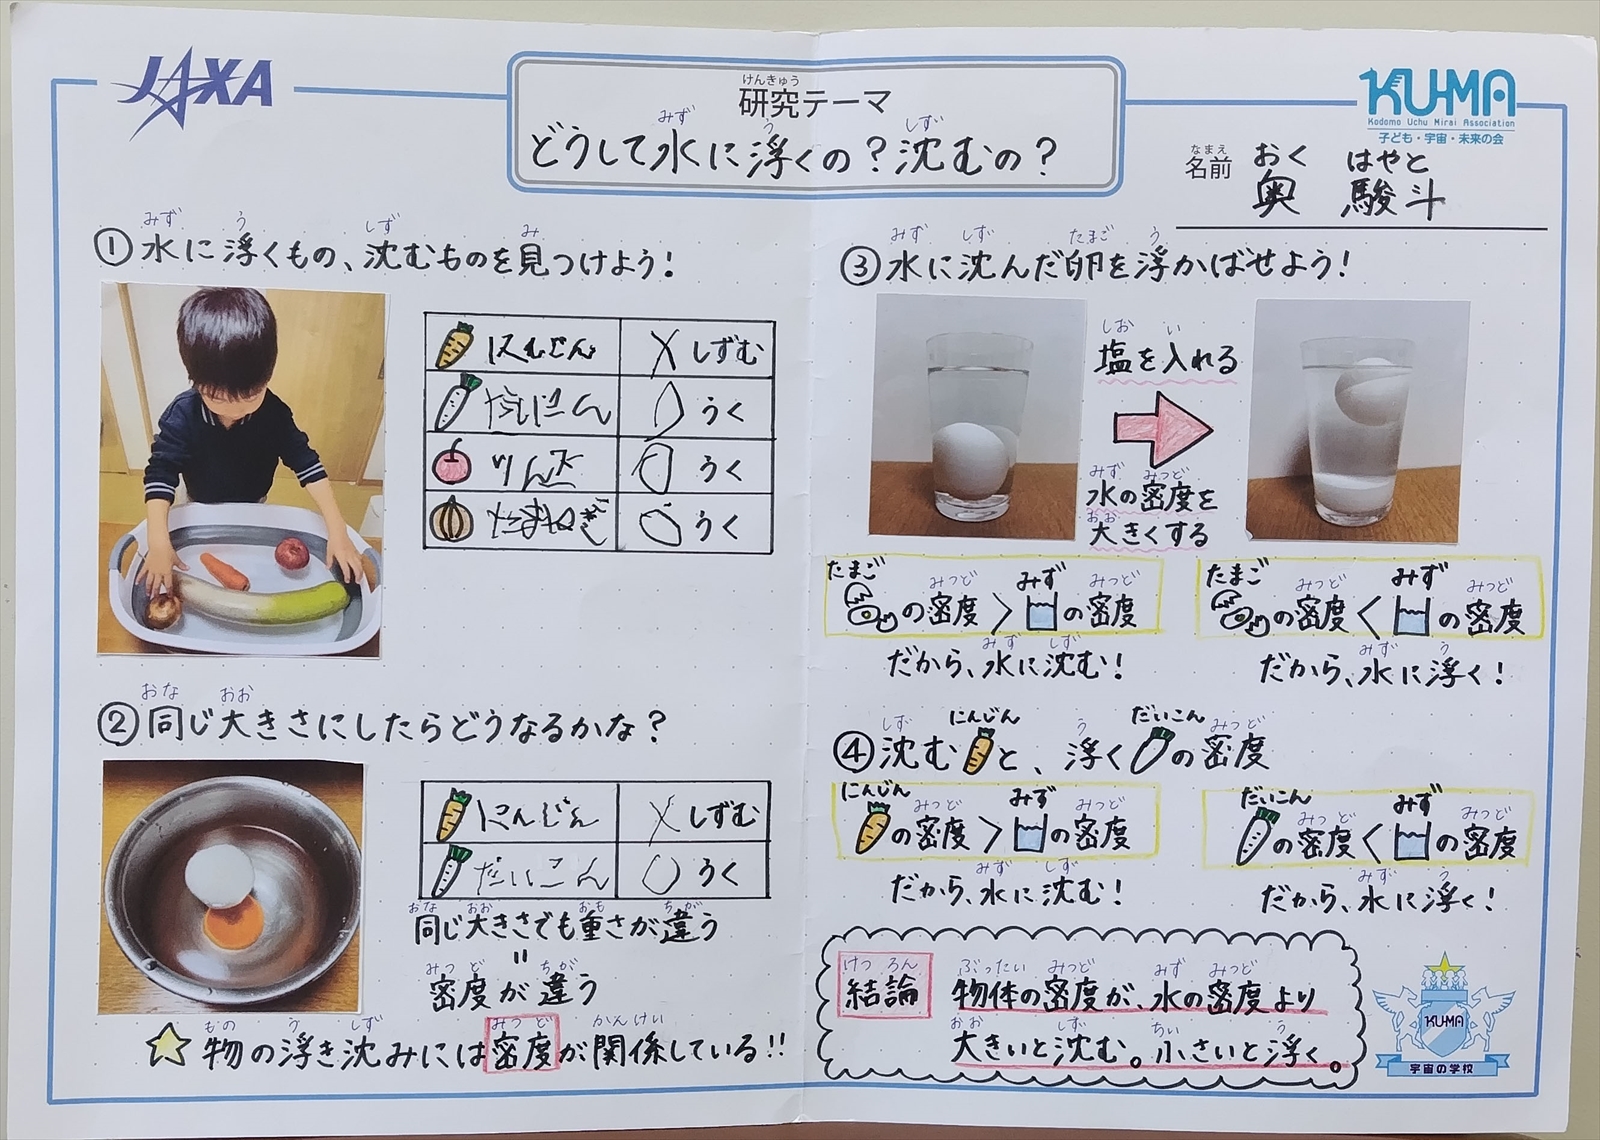 JAXA
けんきゅう
研究テーマ
みず う しず
どうして水に浮くの？沈むの？
KU-MA
Kodomo Uchu Mirai Association
子ども・宇宙・未来の会
なまえ おく はやと
名前 奥 駿斗
みず う しず み
①水に浮くもの、沈むものを見つけよう！
にんじん ✕ しずむ
だいこん ○ うく
りんご ○ うく
たまねぎ ○ うく
おな おお
②同じ大きさにしたらどうなるかな？
にんじん ✕ しずむ
だいこん ○ うく
おな おお おも ちが
同じ大きさでも重さが違う
〃
みつど ちが
密度が違う
もの う しず みつど かんけい
☆物の浮き沈みには密度が関係している!!
みず しず たまご う
③水に沈んだ卵を浮かばせよう！
しお い
塩を入れる
みず みつど
水の密度を
おお
大きくする
たまご みつど みず みつど
の密度＞の密度
みず しず
だから、水に沈む！
たまご みつど みず みつど
の密度＜の密度
みず う
だから、水に浮く！
しず にんじん う だいこん みつど
④沈むと、浮くの密度
にんじん みつど みず みつど
の密度＞の密度
みず しず
だから、水に沈む！
だいこん みつど みず みつど
の密度＜の密度
みず う
だから、水に浮く！
けつろん ぶったい みつど みず みつど
結論 物体の密度が、水の密度より
おお しず ちい う
大きいと沈む。小さいと浮く。
KU-MA
宇宙の学校